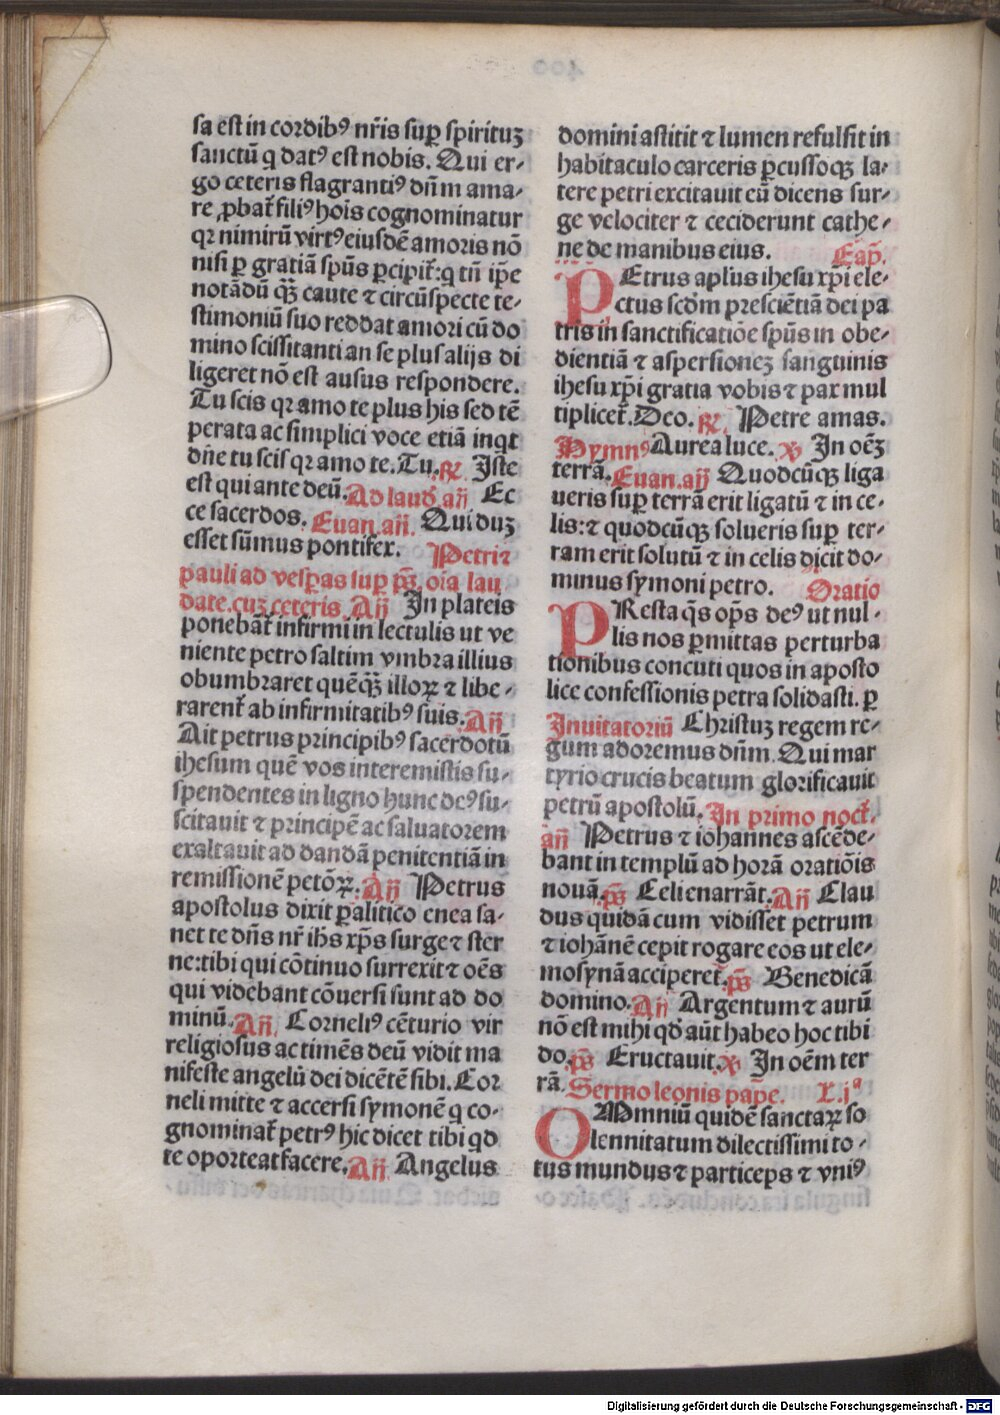 sa est in cordibꝰ nr̄is sup̱ spirituꝫ
sanctū q datꝰ est nobis. Qui er⸗
go ceteris flagrantiꝰ dn̄m ama⸗
re ꝓbat̄ filiꝰ hoīs cognominatur
qꝛ nimirū virtꝰ eiusdē amoris nō
nisi p̱ gratiā spūs p̱cipit̄: q tn̄ ip̄e
notādū qꝫ̄ caute ⁊ circūspecte te⸗
stimoniū suo reddat amori cū do
mino scissitanti an se plus alijs di
ligeret nō est ausus respondere.
Tu scis qꝛ amo te plus his sed tē
perata ac simplici voce etiā inqt
dn̄e tu scis qꝛ amo te. Tu. ℟ Iste
est qui ante deū. Ad laud̄ añ Ec
ce sacerdos. Euan. añ. Qui duꝫ
esset sūmus pontifex. Petri ⁊
pauli ad vesp̱as sup̱ ps̄. oīa lau
date. cuꝫ ceteris. Añ In plateis
ponebāt̄ infirmi in lectulis ut ve
niente petro saltim vmbra illius
obumbraret quēqꝫ̄ illoꝝ ⁊ libe⸗
rarent̄ ab infirmitatibꝰ suis. Añ
Ait petrus principibꝰ sacerdotū
ihesum quē vos interemistis su⸗
spendentes in ligno hunc deꝰ su⸗
scitauit ⁊ principē ac saluatorem
exaltauit ad dandā penitentiā in
remissionē petōꝝ. Añ Petrus
apostolus dixit p̱alitico enea sa⸗
net te dn̄s nr̄ ihs̄ xp̄s surge ⁊ ster
ne: tibi qui cōtinuo surrexit ⁊ oēs
qui videbant cōuersi sunt ad do
minū. Añ. Corneliꝰ cēturio vir
religiosus ac timēs deū vidit ma
nifeste angelū dei dicētē sibi. Cor
neli mitte ⁊ accersi symonē q co⸗
gnominat̄ petrꝰ hic dicet tibi qd
te oporteat facere. Añ Angelus
domini astitit ⁊ lumen refulsit in
habitaculo carceris p̱cussoqꝫ la⸗
tere petri excitauit eū dicens sur⸗
ge velociter ⁊ ceciderunt cathe⸗
ne de manibus eius. Cap̄.
PEtrus apl̄us ihesu xp̄i ele⸗
ctus scd̄m presciētiā dei pa
tris in sanctificatiōe spūs in obe⸗
dientiā ⁊ aspersioneꝫ sanguinis
ihesu xp̄i gratia vobis ⁊ pax mul
tiplicet̄. Deo. ℟ Petre amas.
Hymnꝰ Aurea luce. ℣ In oēꝫ
terrā. Euan. añ Quodcūqꝫ liga
ueris sup̱ terrā erit ligatū ⁊ in ce⸗
lis: ⁊ quodcūqꝫ solueris sup̱ ter⸗
ram erit solutū ⁊ in celis dicit do⸗
minus symoni petro. Oratio
PResta q̄s op̄s deꝰ ut nul⸗
lis nos p̱mittas perturba
tionibus concuti quos in aposto
lice confessionis petra solidasti. p̱
Inuitatoriū Christuꝫ regem re⸗
gum adoremus dn̄m. Qui mar
tyrio crucis beatum glorificauit
petrū apostolū. In primo noct̄.
añ Petrus ⁊ iohannes ascēde⸗
bant in templū ad horā oratiōis
nouā. ps̄ Celi enarrāt. Añ Clau
dus quidā cum vidisset petrum
⁊ iohānē cepit rogare eos ut ele⸗
mosynā acciperet. ps̄ Benedicā
domino. Añ Argentum ⁊ aurū
nō est mihi qd̄ aūt habeo hoc tibi
do. ps̄ Eructauit. ℣ In oēm ter
rā. Sermo leonis pape. L. jᵃ
OMmniū quidē sanctaꝝ so
lennitatum dilectissimi to⸗
tus mundus ⁊ particeps ⁊ vniꝰ
Digitalisierung gefördert durch die Deutsche Forschungsgemeinschaft - DFG